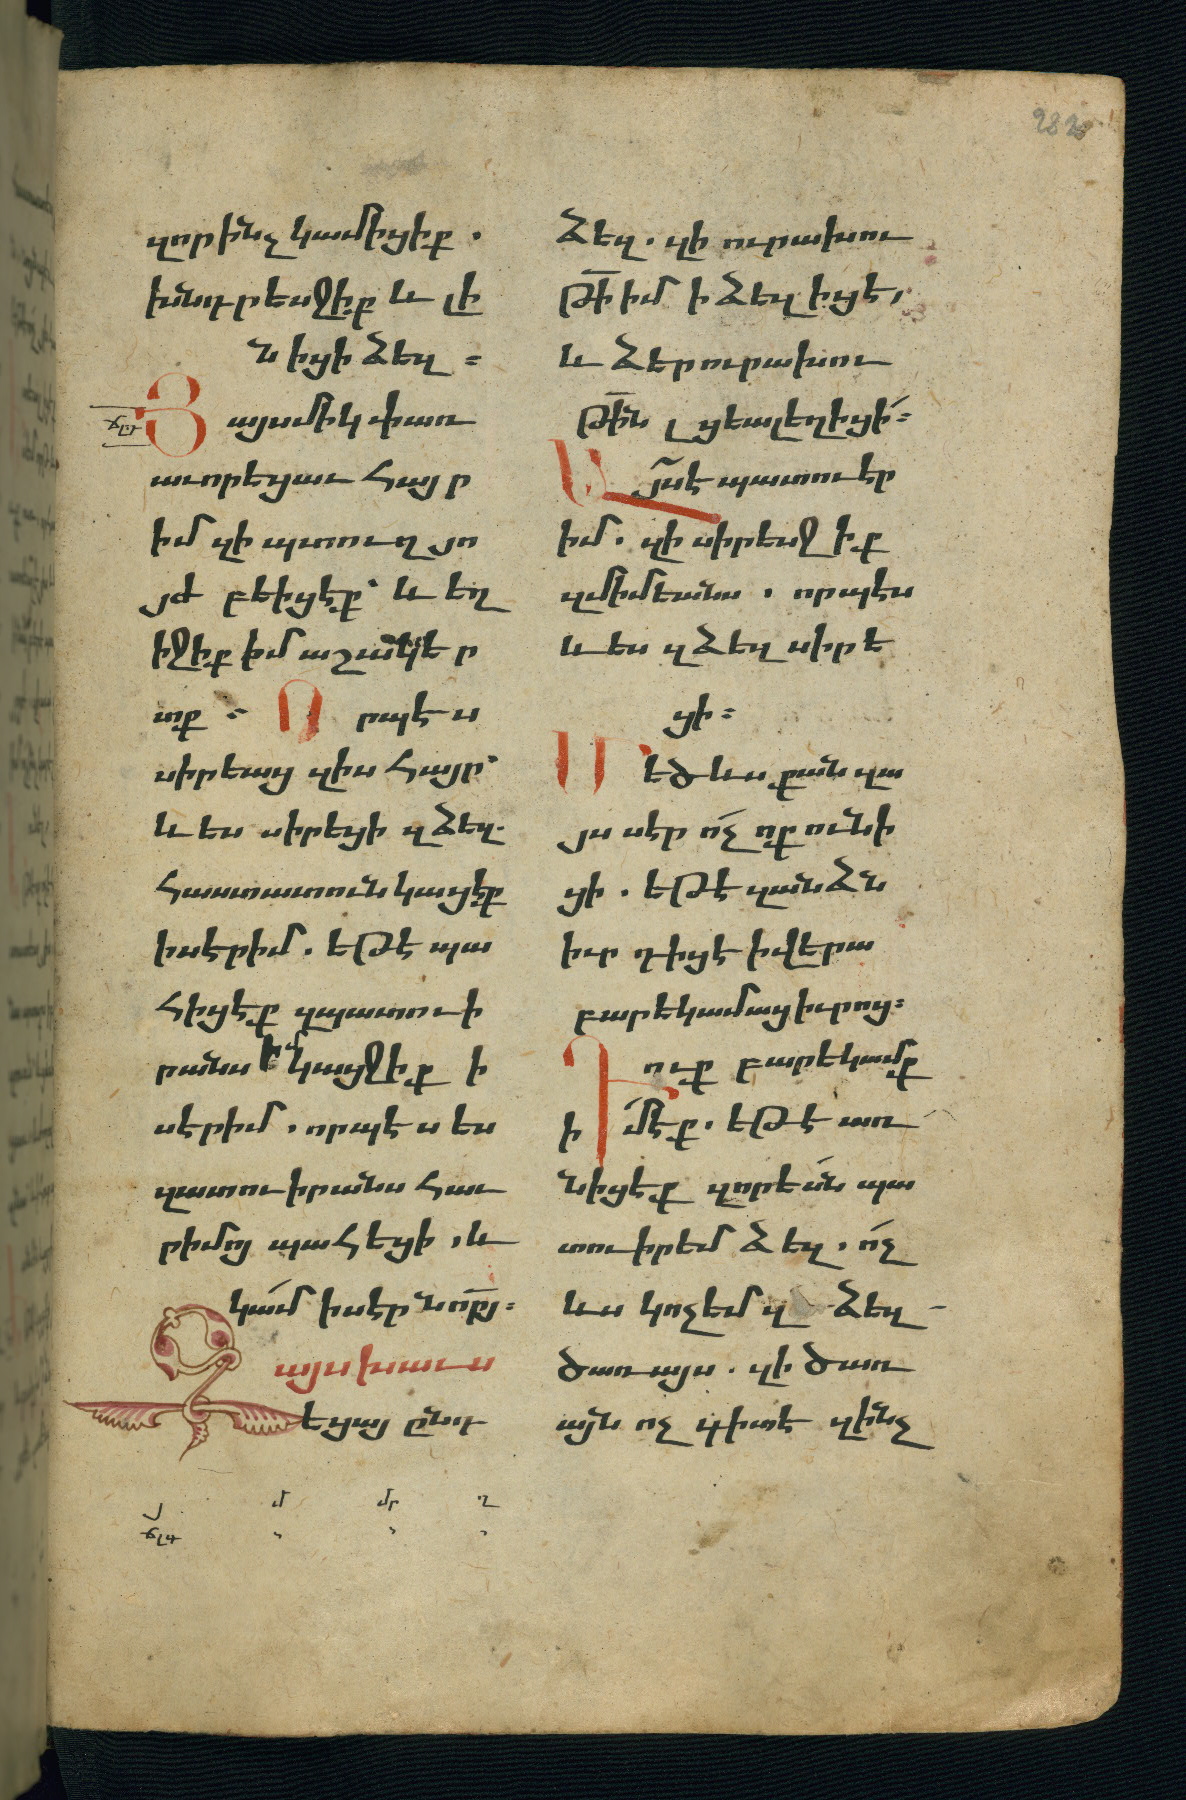 282
զորինչ կամիցիք .
խնդրեսջիք և լի
նիցի ձեզ ։
Յայսմիկ փառ
աւորեցաւ Հայր
իմ զի պտուղ յո
յժ բեիցէք՝ և եղ
իջիք իմ աշակեր
տք ։ Որպէս
սիրեաց զիս Հայր՝
և ես սիրեցի զձեզ.
Հաստատուն կացէք
ի սէր իմ . եթէ պա
Հիցէք զպատուի
րանս իմ կացջիք ի
սէր իմ . որպէս ես
զատուիրանս Հաւ
ր իմոյ պաՀեցի , և
կամ ի սէր նորյ ։
այս խաւս
եցայ ընդ
յ մ մր ղ
ճլդ
ձեզ . զի ուրախու
թի իմ ի ձեզ իցէ ,
և ձեր ուրախու
թին լցեալ եղիցի ։
Այս է պատուէր
իմ . զի սիրեսջիք
զմիմեանս . որպէս
և ես զձեզ սիրե
ցի ։
Մեծ ևս քան զա
յս սէր ոչ ոք ունի
ցի . եթէ զանձն
իւր դիցէ ի վերա
բարեկամաց իւրոց ։
Դուք բարեկամք
իմ էք . եթէ առ
նիցէք զոր ես պա
տուիրեմ ձեզ . ոչ
ևս կոչեմ զձեզ
ծառայս . զի ծառ
այն ոչ գիտէ զինչ